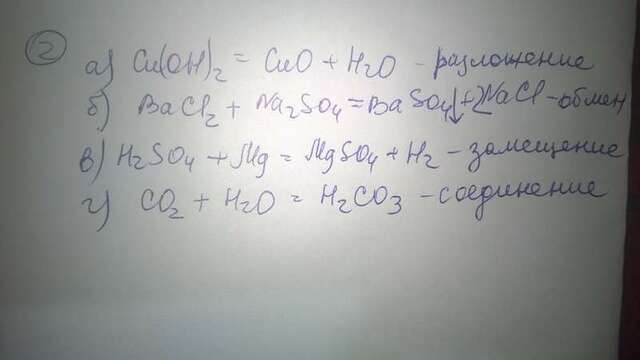 2
а) Cu(OH)2 = CuO + H2O - разложение
б) BaCl2 + Na2SO4 = BaSO4↓ + 2NaCl - обмен
в) H2SO4 + Mg = MgSO4 + H2 - замещение
г) CO2 + H2O = H2CO3 - соединение